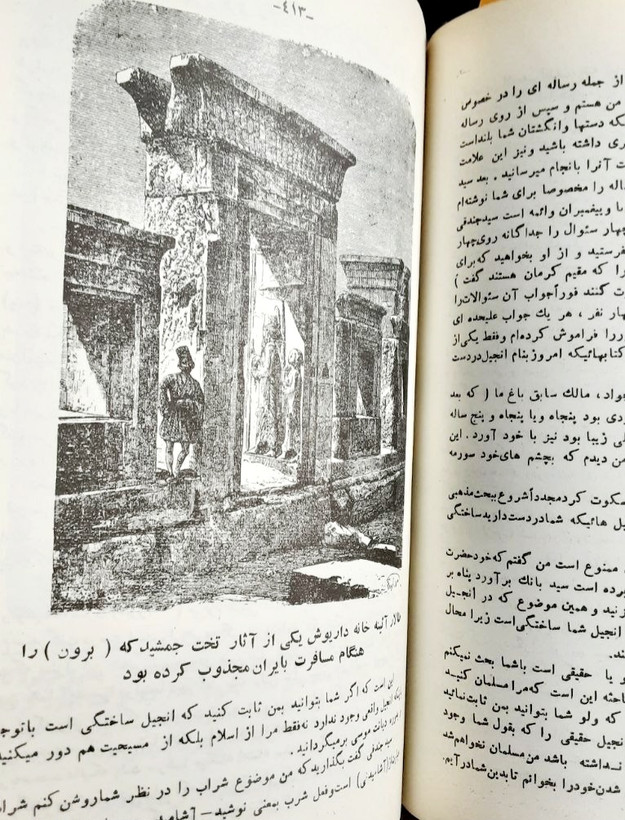 -٤١٣-
تالار آئینه خانه داریوش یکی از آثار تخت جمشید که ( برون ) را
هنگام مسافرت بایران مجذوب کرده بود
این است که اگر شما بتوانید بمن ثابت کنید که انجیل ساختگی است باتوجه
انجیل واقعی وجود ندارد نه فقط مرا از اسلام بلکه از مسیحیت هم دور میکنید
دیانت موسی برمیگردانید .
سید جندقی گفت بگذارید که من موضوع شراب را در نظر شما روشن کنم شراب
(آشامیدنی) است وفعل شرب بمعنی نوشید -
از جمله رساله ای را در خصوص
من هستم و سپس از روی رساله
که دستها وانگشتان شما بلند است
داشته باشید ونیز این علامت
آنرا بانجام میرسانید . بعد سید
را مخصوصا برای شما نوشته‌ام
با وپیغمبران وائمه است سید جندقی
چهار سئوال را جداگانه روی چهار
فرستید و از او بخواهید که برای
را که مقیم کرمان هستند گفت )
کنند فوراً جواب آن سئوالات را
نفر ، هر یك جواب علیحده ای
را فراموش کرده‌ام وفقط یکی از
کتابهائیکه امروز بنام انجیل در دست
جواد ، مالك سابق باغ ما ( که بعد
بود پنجاه ویا پنجاه و پنج ساله
زیبا بود نیز با خود آورد . این
من دیدم که بچشم های خود سورمه
سکوت کرد مجدداً شروع ببحث مذهبی
هائیکه شما در دست دارید ساختگی
ممنوع است من گفتم که خود حضرت
برده است سید بانك برآورد پناه بر
زنید و همین موضوع که در انجیل
انجیل شما ساختگی است زیرا محال
و یا حقیقی است باشما بحث نمیکنم
این است که مرا مسلمان کنید
که ولو شما بتوانید بمن ثابت نمائید
انجیل حقیقی را که بقول شما وجود
نداشته باشد من مسلمان نخواهم شد
شدن خود را بخوانم تا بدین شما درآیم.